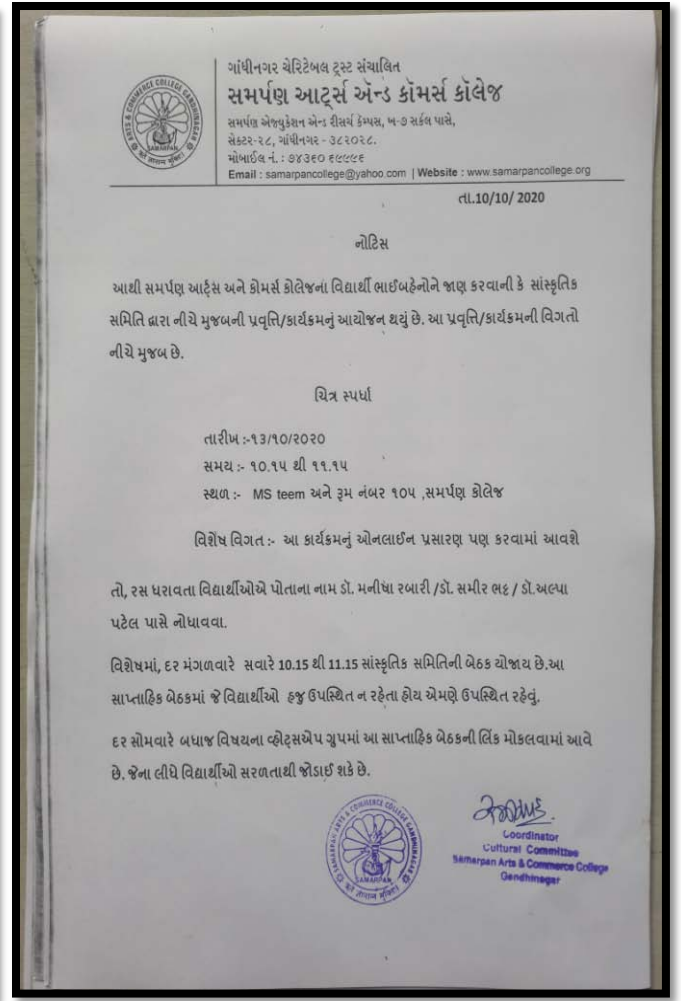 ARTS & COMMERCE COLLEGE GANDHINAGAR
SAMARPAN
ગાંધીનગર ચેરિટેબલ ટ્રસ્ટ સંચાલિત
સમર્પણ આર્ટ્સ ઍન્ડ કૉમર્સ કૉલેજ
સમર્પણ એજ્યુકેશન એન્ડ રીસર્ચ કેમ્પસ, ખ-૭ સર્કલ પાસે,
સેક્ટર-૨૮, ગાંધીનગર - ૩૮૨૦૨૮.
મોબાઈલ નં. : ૭૪૩૬૦ ૬૯૯૯૬
Email : samarpancollege@yahoo.com | Website : www.samarpancollege.org
તા.10/10/ 2020
નોટિસ
આથી સમર્પણ આર્ટ્સ અને કોમર્સ કોલેજનાં વિદ્યાર્થી ભાઈબહેનોને જાણ કરવાની કે સાંસ્કૃતિક
સમિતિ દ્વારા નીચે મુજબની પ્રવૃત્તિ/કાર્યક્રમનું આયોજન થયું છે. આ પ્રવૃત્તિ/કાર્યક્રમની વિગતો
નીચે મુજબ છે.
ચિત્ર સ્પર્ધા
તારીખ :-૧૩/૧૦/૨૦૨૦
સમય :- ૧૦.૧૫ થી ૧૧.૧૫
સ્થળ :- MS teem અને રૂમ નંબર ૧૦૫ ,સમર્પણ કોલેજ
વિશેષ વિગત :- આ કાર્યક્રમનું ઓનલાઈન પ્રસારણ પણ કરવામાં આવશે
તો, રસ ધરાવતા વિદ્યાર્થીઓએ પોતાના નામ ડૉ. મનીષા રબારી /ડૉ. સમીર ભટ્ટ / ડૉ.અલ્પા
પટેલ પાસે નોધાવવા.
વિશેષમાં, દર મંગળવારે સવારે 10.15 થી 11.15 સાંસ્કૃતિક સમિતિની બેઠક યોજાય છે.આ
સાપ્તાહિક બેઠકમાં જે વિદ્યાર્થીઓ હજુ ઉપસ્થિત ન રહેતા હોય એમણે ઉપસ્થિત રહેવું.
દર સોમવારે બધાજ વિષયના વ્હોટ્સએપ ગ્રુપમાં આ સાપ્તાહિક બેઠકની લિંક મોકલવામાં આવે
છે. જેના લીધે વિદ્યાર્થીઓ સરળતાથી જોડાઈ શકે છે.
SAMARPAN ARTS & COMMERCE COLLEGE GANDHINAGAR
SAMARPAN
Coordinator
Cultural Committee
Samarpan Arts & Commerce College
Gandhinagar